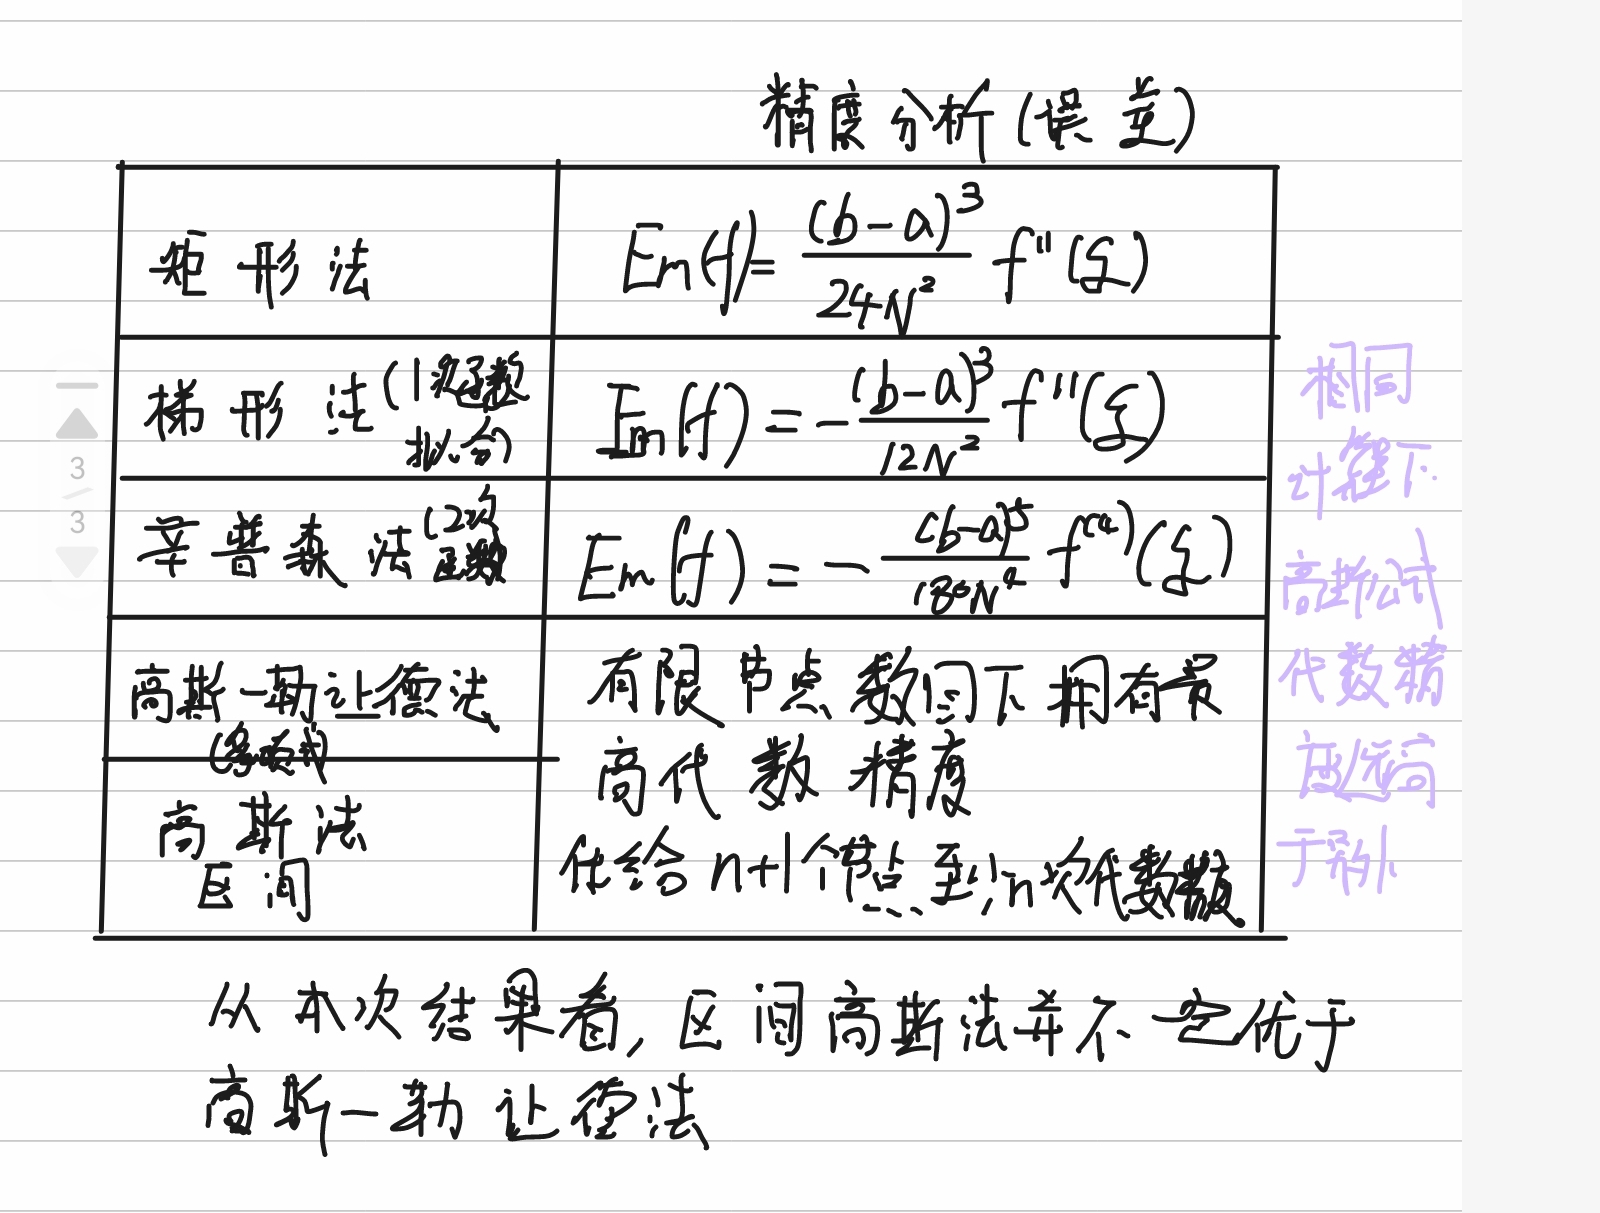 精度分析(误差)
矩形法
En(f)= (b-a)³/24N² f''(ξ)
梯形法(1次函数
拟合)
En(f)=-(b-a)³/12N² f''(ξ)
辛普森法(2次
函数
En(f)=-(b-a)⁵/180N⁴ f⁽⁴⁾(ξ)
高斯一勒让德法
(多项式)
高斯法
区间
有限节点数间下拥有最
高代数精度
任给n+1个节点至少n次代数
相同
计算下
高斯公式
代数精
度远高
于
从本次结果看,区间高斯法并不一定优于
高斯一勒让德法
3
3